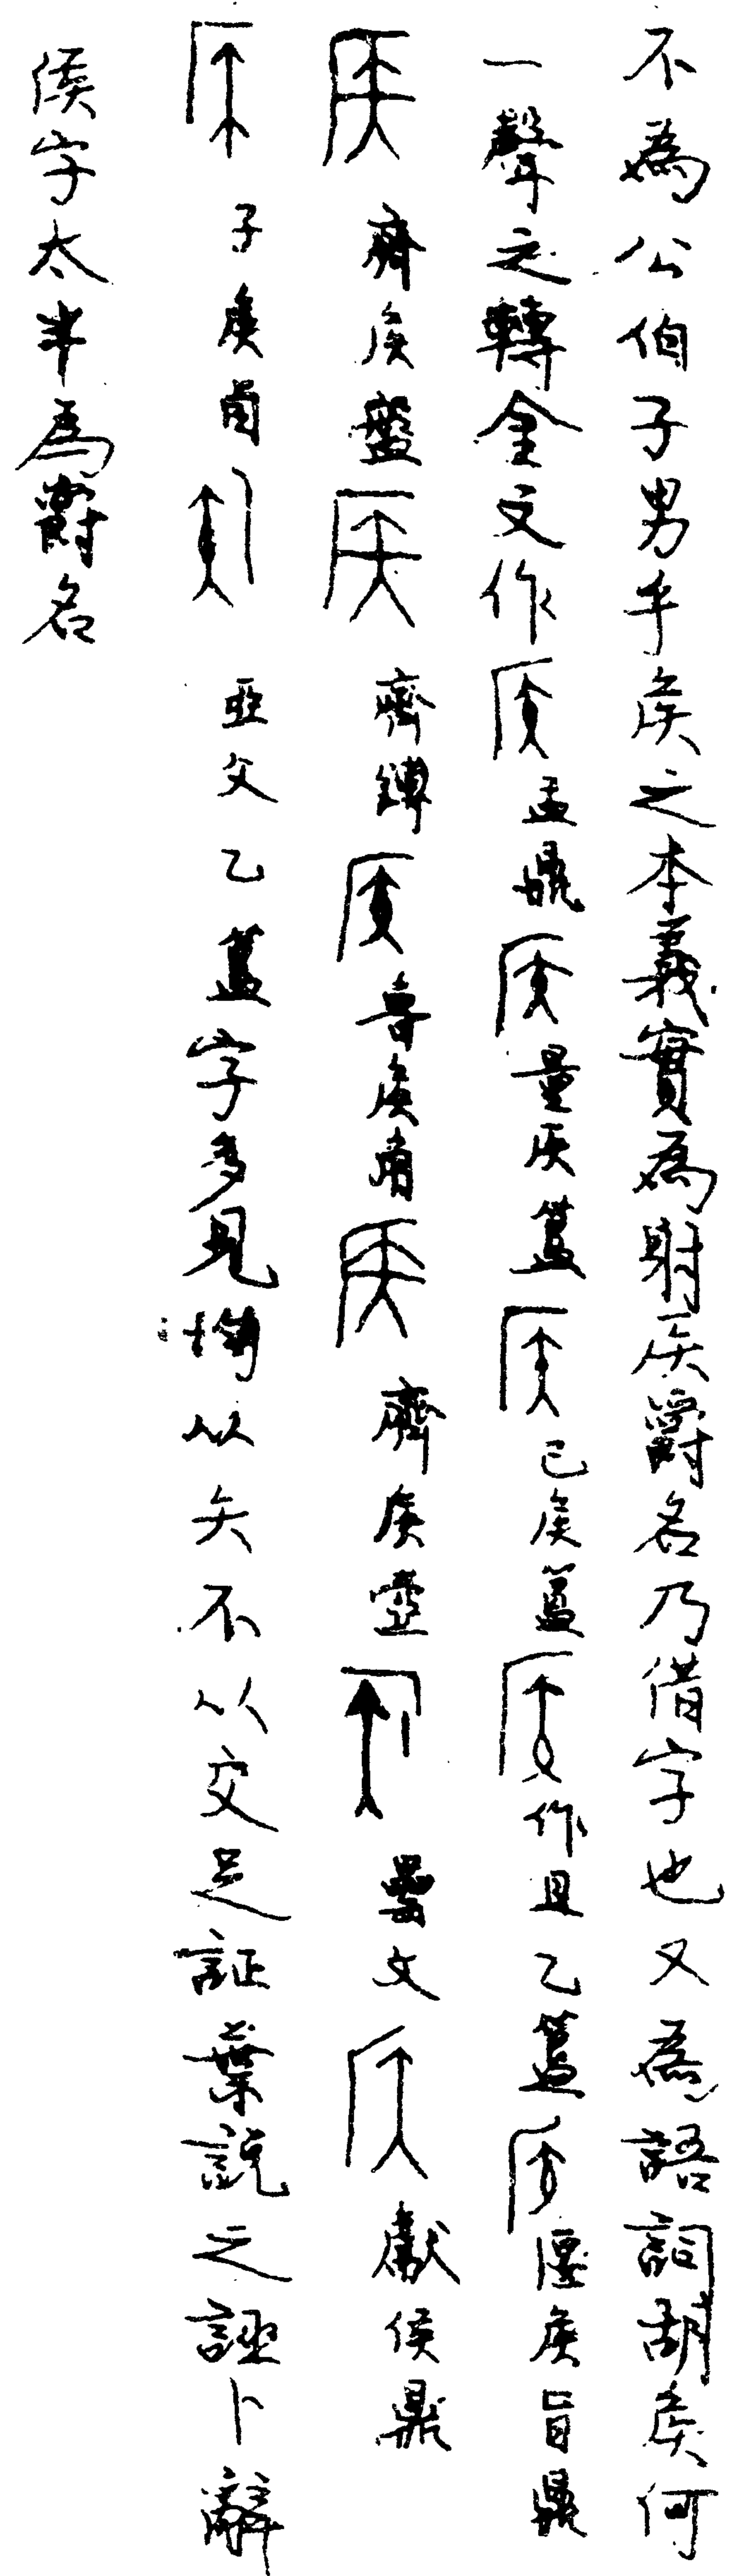 不為公伯子男乎矦之本義實為射矦爵名乃借字也又為語詞胡矦何
一聲之轉金文作盂鼎量矦簋己矦簋作且乙簋匽矦旨鼎
齊矦盤齊鎛魯矦角齊矦壺罍文獻侯鼎
子矦卣亞父乙簋字多見均从矢不从交足証葉說之誣卜辭
侯字太半為爵名